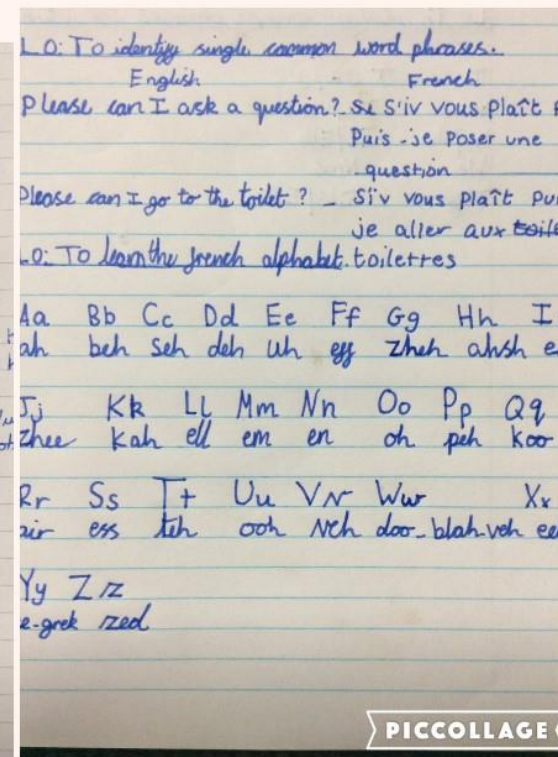 L.O: To identify single common word phrases.
English - French
Please can I ask a question? - S'iv vous plaît
Puis-je poser une
question
Please can I go to the toilet? - S'iv vous plaît
je aller aux
L.O: To learn the french alphabet. toilettes
Aa Bb Cc Dd Ee Ff Gg Hh I
ah beh seh deh uh eff zheh ahsh
Jj Kk Ll Mm Nn Oo Pp Qq
zhee kah ell em en oh peh koo
Rr Ss Tt Uu Vv Ww Xx
air ess teh ooh veh doo-blah-veh
Yy Zz
e-grek zed
PICCOLLAGE